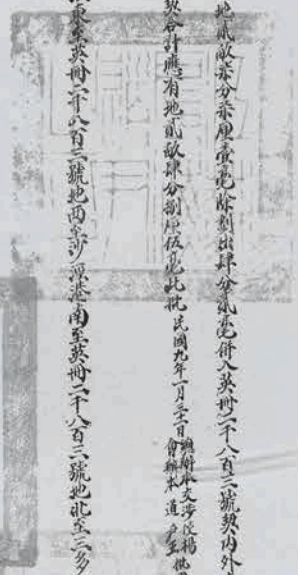 地貳畝柒分柒厘壹毫除劃出肆分貳毫併入英冊二千八百三號契內外
契合計應有地貳畝肆分捌厘伍毫此批 民國九年一月三十一日
辦本交涉使楊
會辦本道尹王
東至英冊二千八百三號地西至沙涇港南至英冊二千八百三號地北至三多